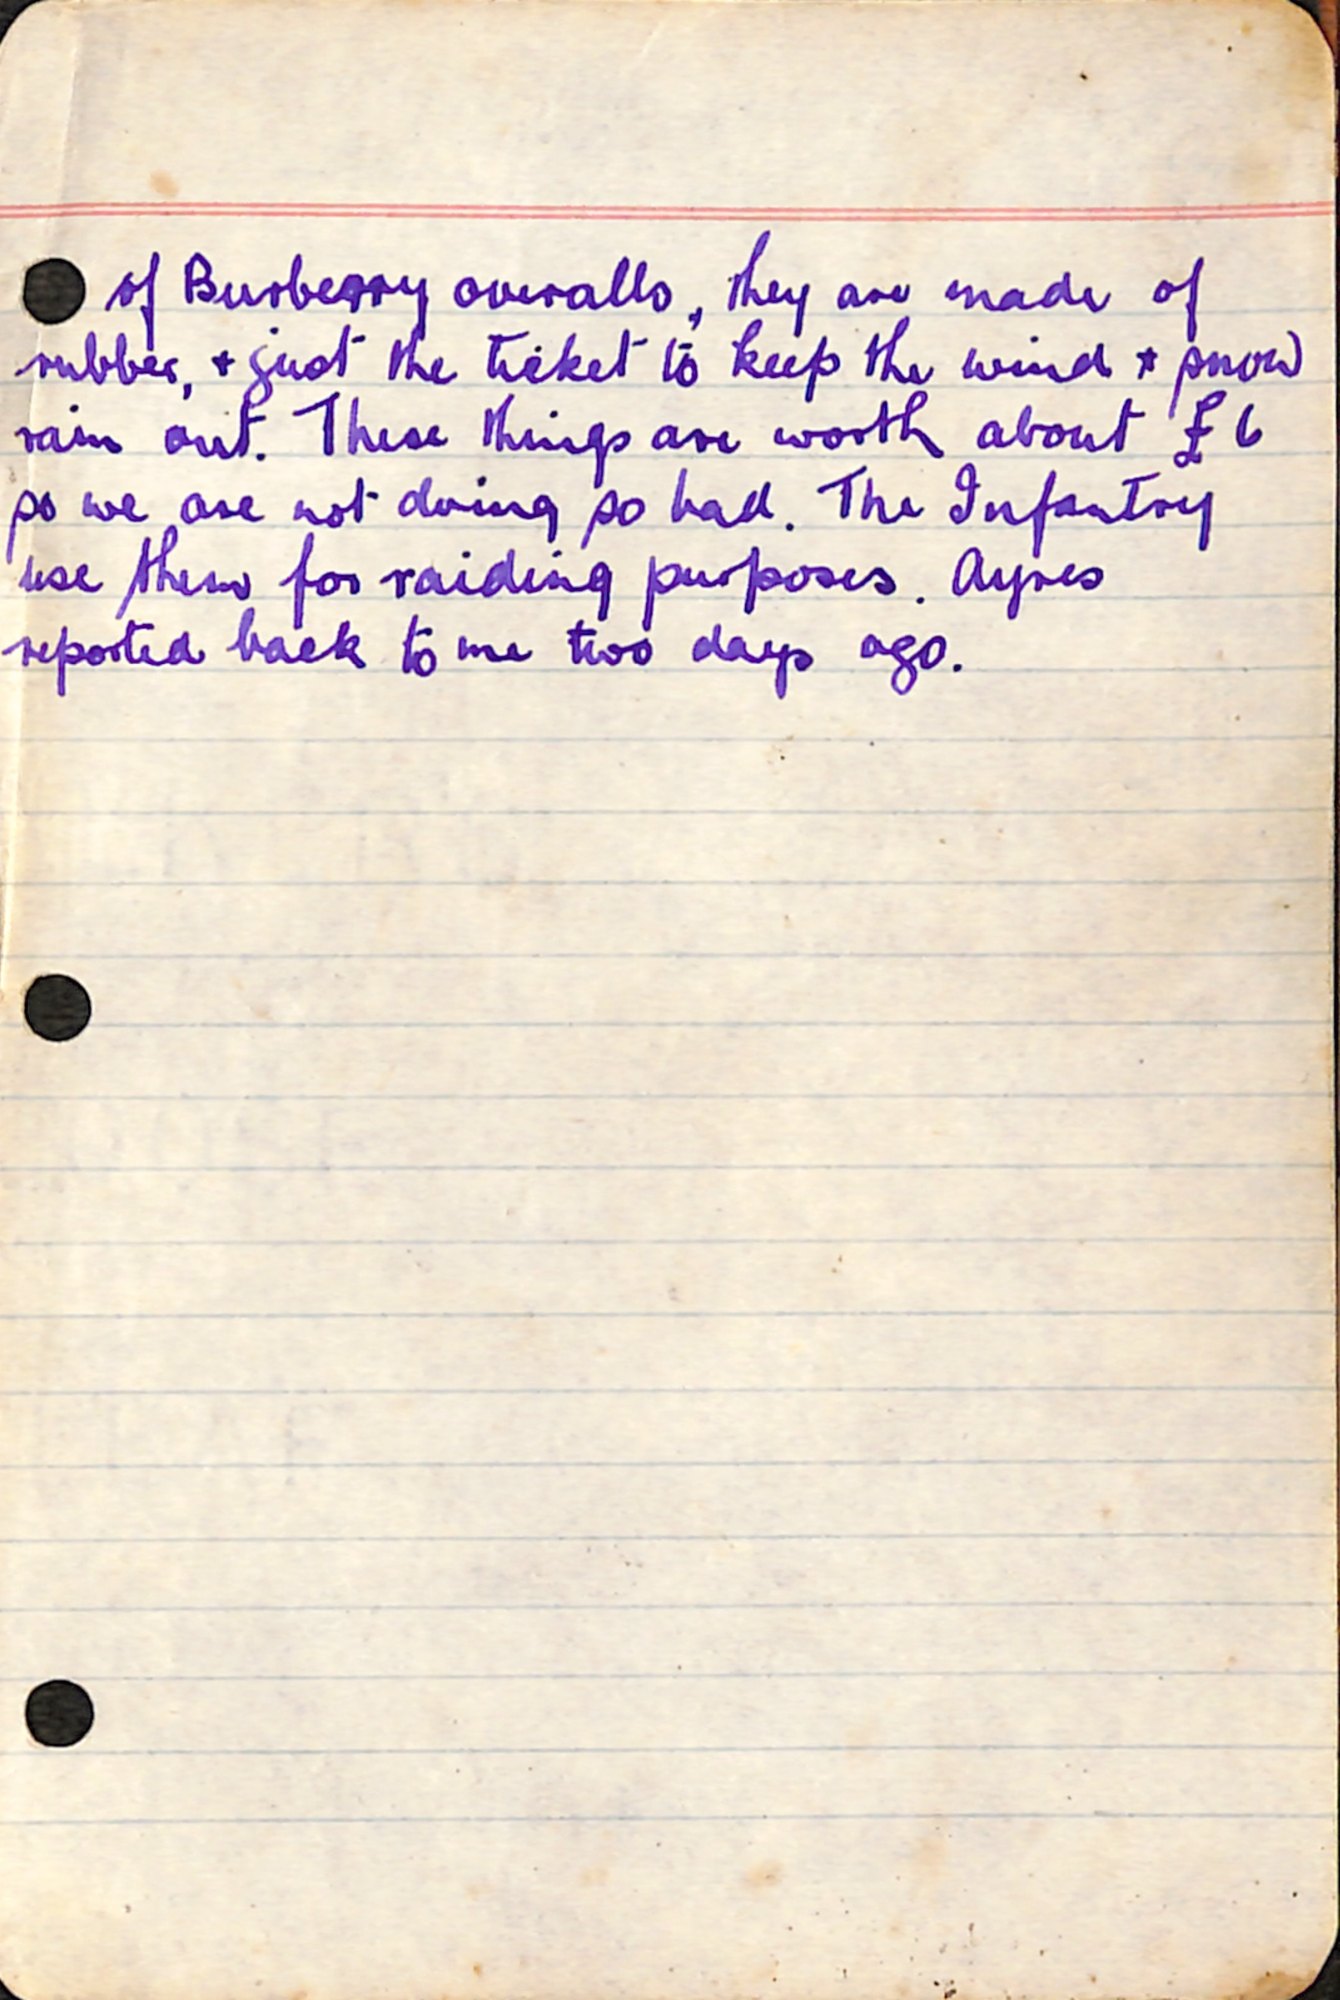 of Burberry overalls, they are made of
rubber, + just the ticket to keep the wind + snow
rain out. These things are worth about £6
so we are not doing so bad. The Infantry
use them for raiding purposes. Ayres
reported back to me two days ago.